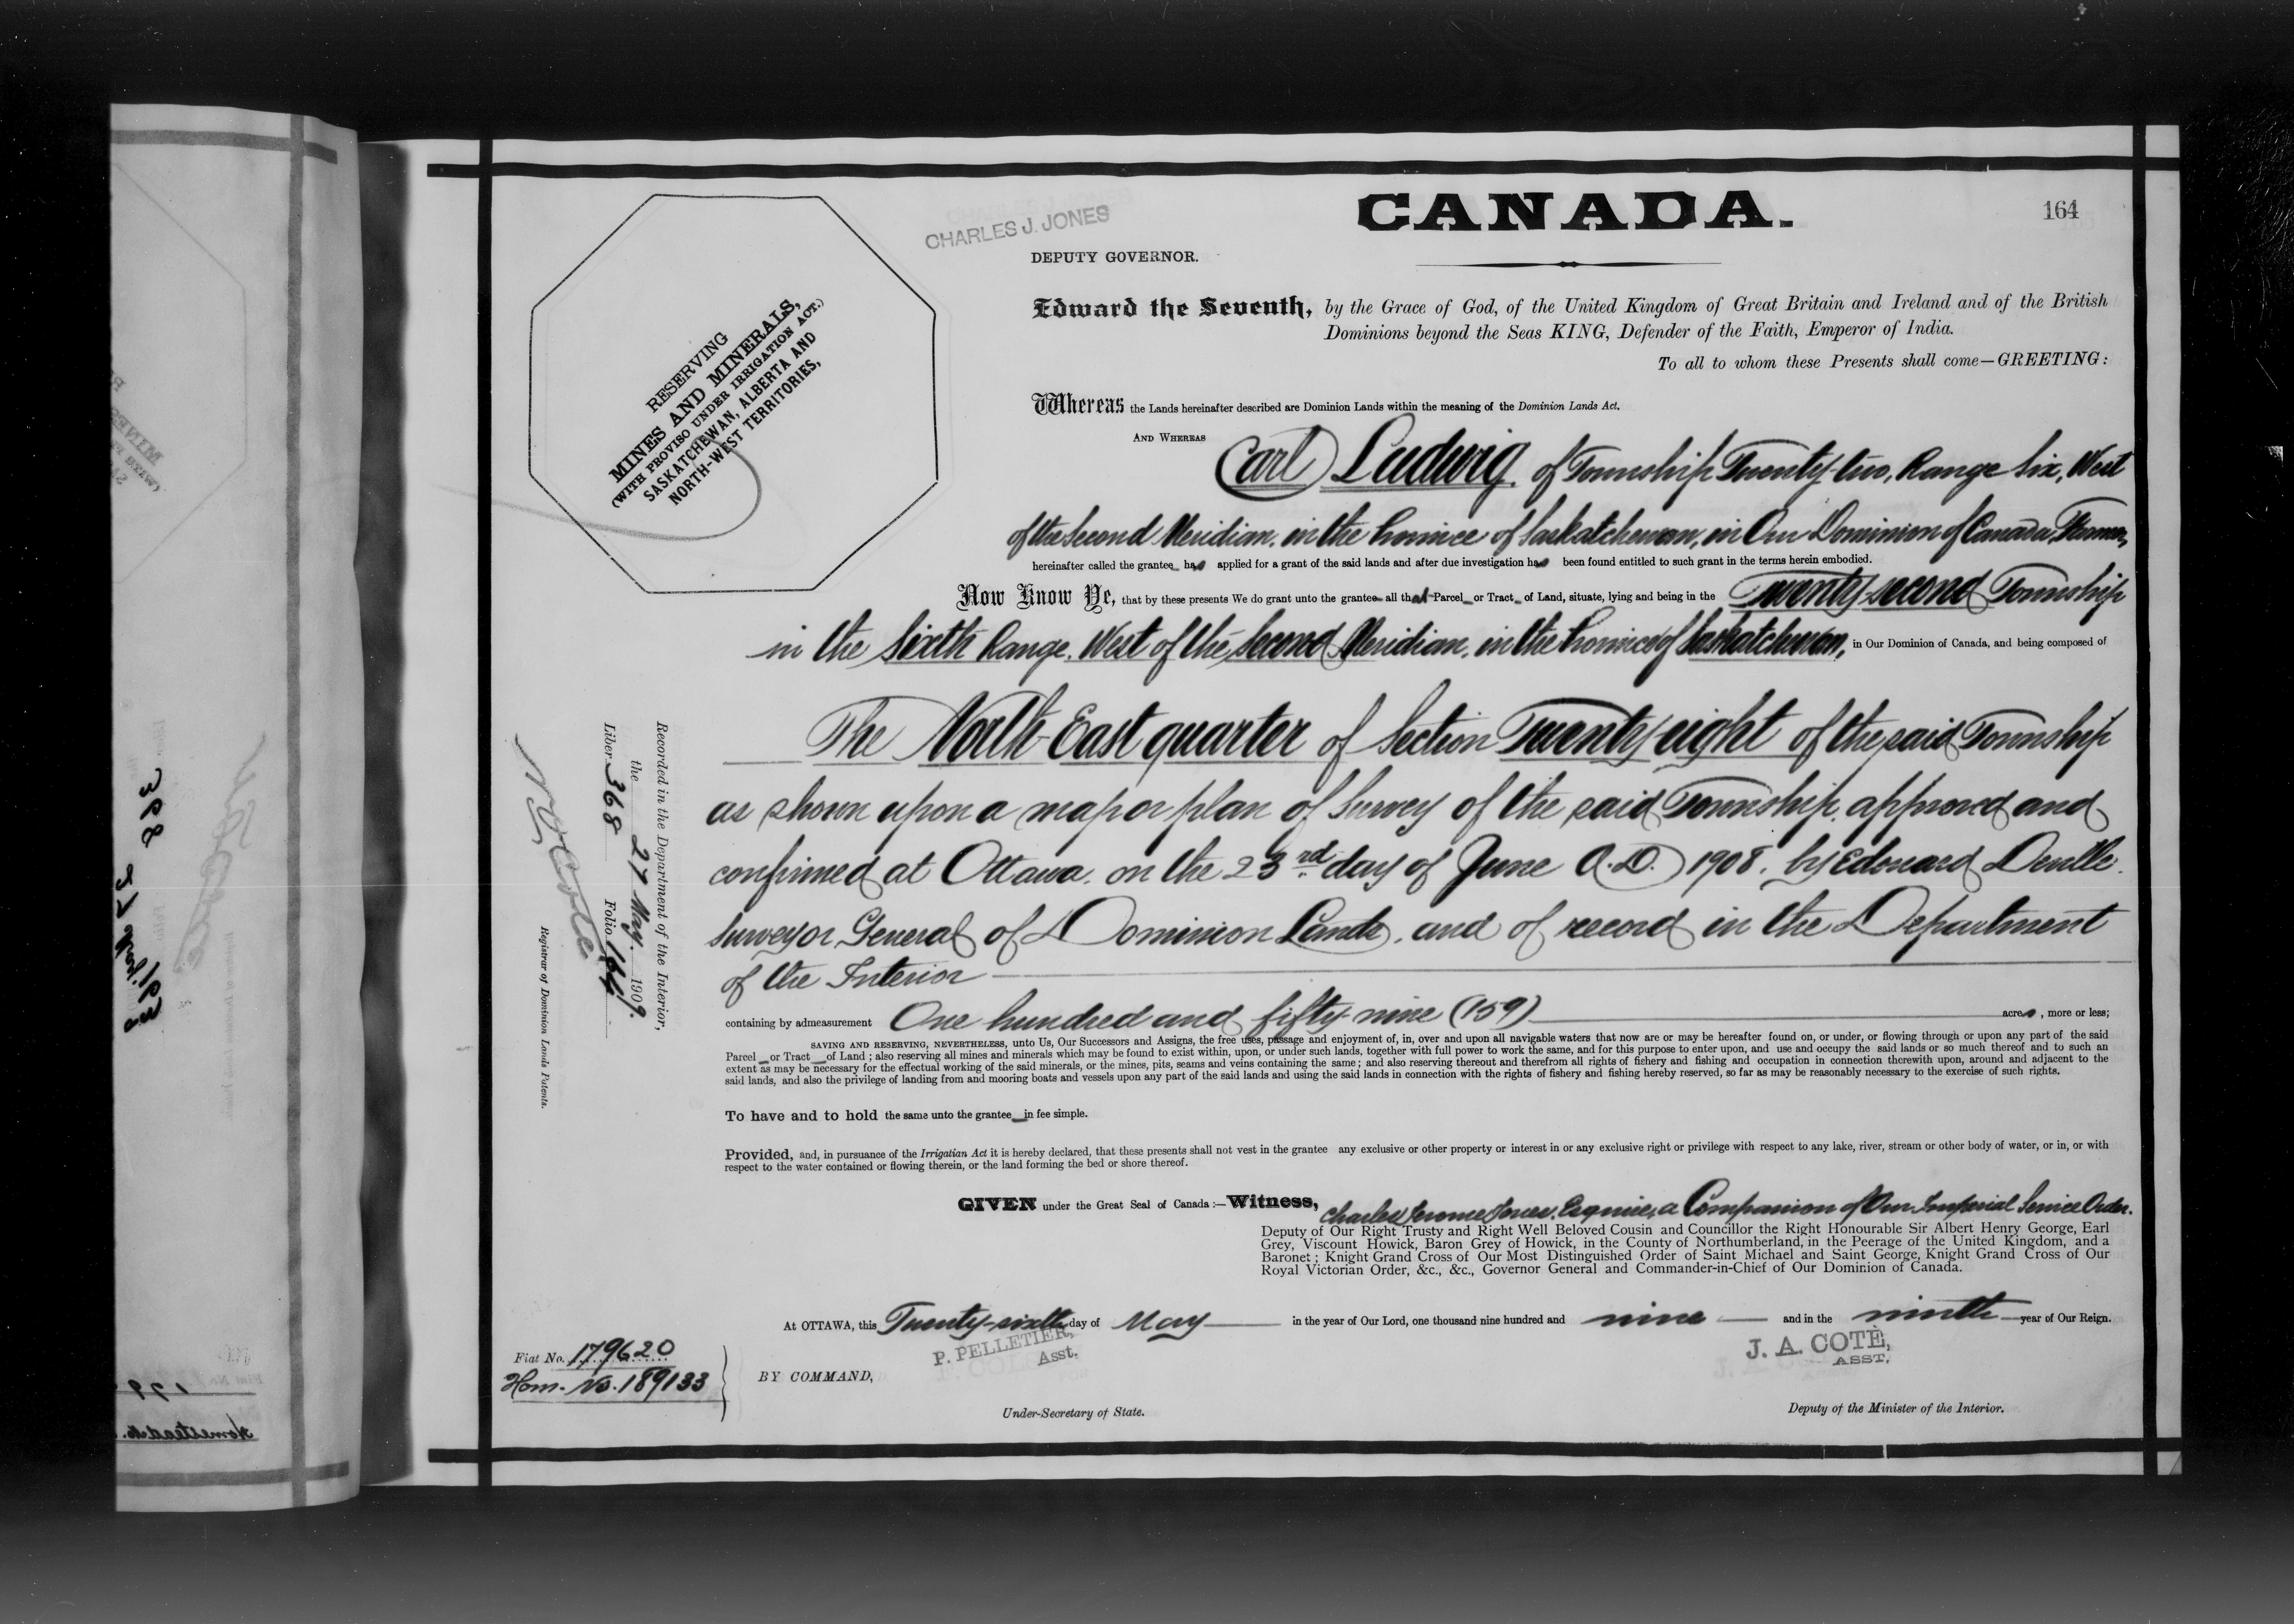 CANADA.
164
CHARLES J. JONES
DEPUTY GOVERNOR.
RESERVING
MINES AND MINERALS,
(WITH PROVISO UNDER IRRIGATION ACT.)
SASKATCHEWAN, ALBERTA AND
NORTH-WEST TERRITORIES,
Edward the Seventh, by the Grace of God, of the United Kingdom of Great Britain and Ireland and of the British
Dominions beyond the Seas KING, Defender of the Faith, Emperor of India.
To all to whom these Presents shall come—GREETING:
Whereas the Lands hereinafter described are Dominion Lands within the meaning of the Dominion Lands Act.
AND WHEREAS Carl Ludwig of Township Twenty-two, Range Six, West
of the Second Meridian, in the Province of Saskatchewan, in Our Dominion of Canada, Farmer,
hereinafter called the grantee has applied for a grant of the said lands and after due investigation has been found entitled to such grant in the terms herein embodied.
Now Know Ye, that by these presents We do grant unto the grantee all that Parcel or Tract of Land, situate, lying and being in the Twenty-second Township
in the Sixth Range, West of the Second Meridian, in the Province of Saskatchewan, in Our Dominion of Canada, and being composed of
The North East quarter of Section Twenty eight of the said Township
as shown upon a map or plan of Survey of the said Township, approved and
confirmed at Ottawa, on the 23rd day of June A.D. 1908, by Edouard Deville
Surveyor General of Dominion Lands, and of record in the Department
of the Interior
containing by admeasurement One hundred and fifty-nine (159) acres, more or less;
SAVING AND RESERVING, NEVERTHELESS, unto Us, Our Successors and Assigns, the free uses, passage and enjoyment of, in, over and upon all navigable waters that now are or may be hereafter found on, or under, or flowing through or upon any part of the said
Parcel or Tract of Land; also reserving all mines and minerals which may be found to exist within, upon, or under such lands, together with full power to work the same, and for this purpose to enter upon, and use and occupy the said lands or so much thereof and to such an
extent as may be necessary for the effectual working of the said minerals, or the mines, pits, seams and veins containing the same; and also reserving thereout and therefrom all rights of fishery and fishing and occupation in connection therewith upon, around and adjacent to the
said lands, and also the privilege of landing from and mooring boats and vessels upon any part of the said lands and using the said lands in connection with the rights of fishery and fishing hereby reserved, so far as may be reasonably necessary to the exercise of such rights.
To have and to hold the same unto the grantee in fee simple.
Provided, and, in pursuance of the Irrigation Act it is hereby declared, that these presents shall not vest in the grantee any exclusive or other property or interest in or any exclusive right or privilege with respect to any lake, river, stream or other body of water, or in, or with
respect to the water contained or flowing therein, or the land forming the bed or shore thereof.
GIVEN under the Great Seal of Canada:—Witness, Charles Jerome Jones, Esquire, a Companion of Our Imperial Service Order,
Deputy of Our Right Trusty and Right Well Beloved Cousin and Councillor the Right Honourable Sir Albert Henry George, Earl
Grey, Viscount Howick, Baron Grey of Howick, in the County of Northumberland, in the Peerage of the United Kingdom, and a
Baronet; Knight Grand Cross of Our Most Distinguished Order of Saint Michael and Saint George, Knight Grand Cross of Our
Royal Victorian Order, &c., &c., Governor General and Commander-in-Chief of Our Dominion of Canada.
At OTTAWA, this Twenty-sixth day of May in the year of Our Lord, one thousand nine hundred and nine and in the ninth year of Our Reign.
P. PELLETIER,
Asst.
J. A. COTÉ,
ASST.
BY COMMAND,
Under-Secretary of State.
Deputy of the Minister of the Interior.
Fiat No. 179620
Hom. No. 189133
Recorded in the Department of the Interior,
the 27 May. 1909.
Liber 368 Folio 164
Registrar of Dominion Lands Patents.